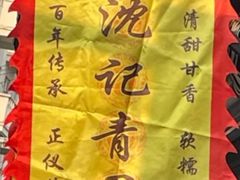 清甜甘香 软糯
沈记青
百年传承 正仪